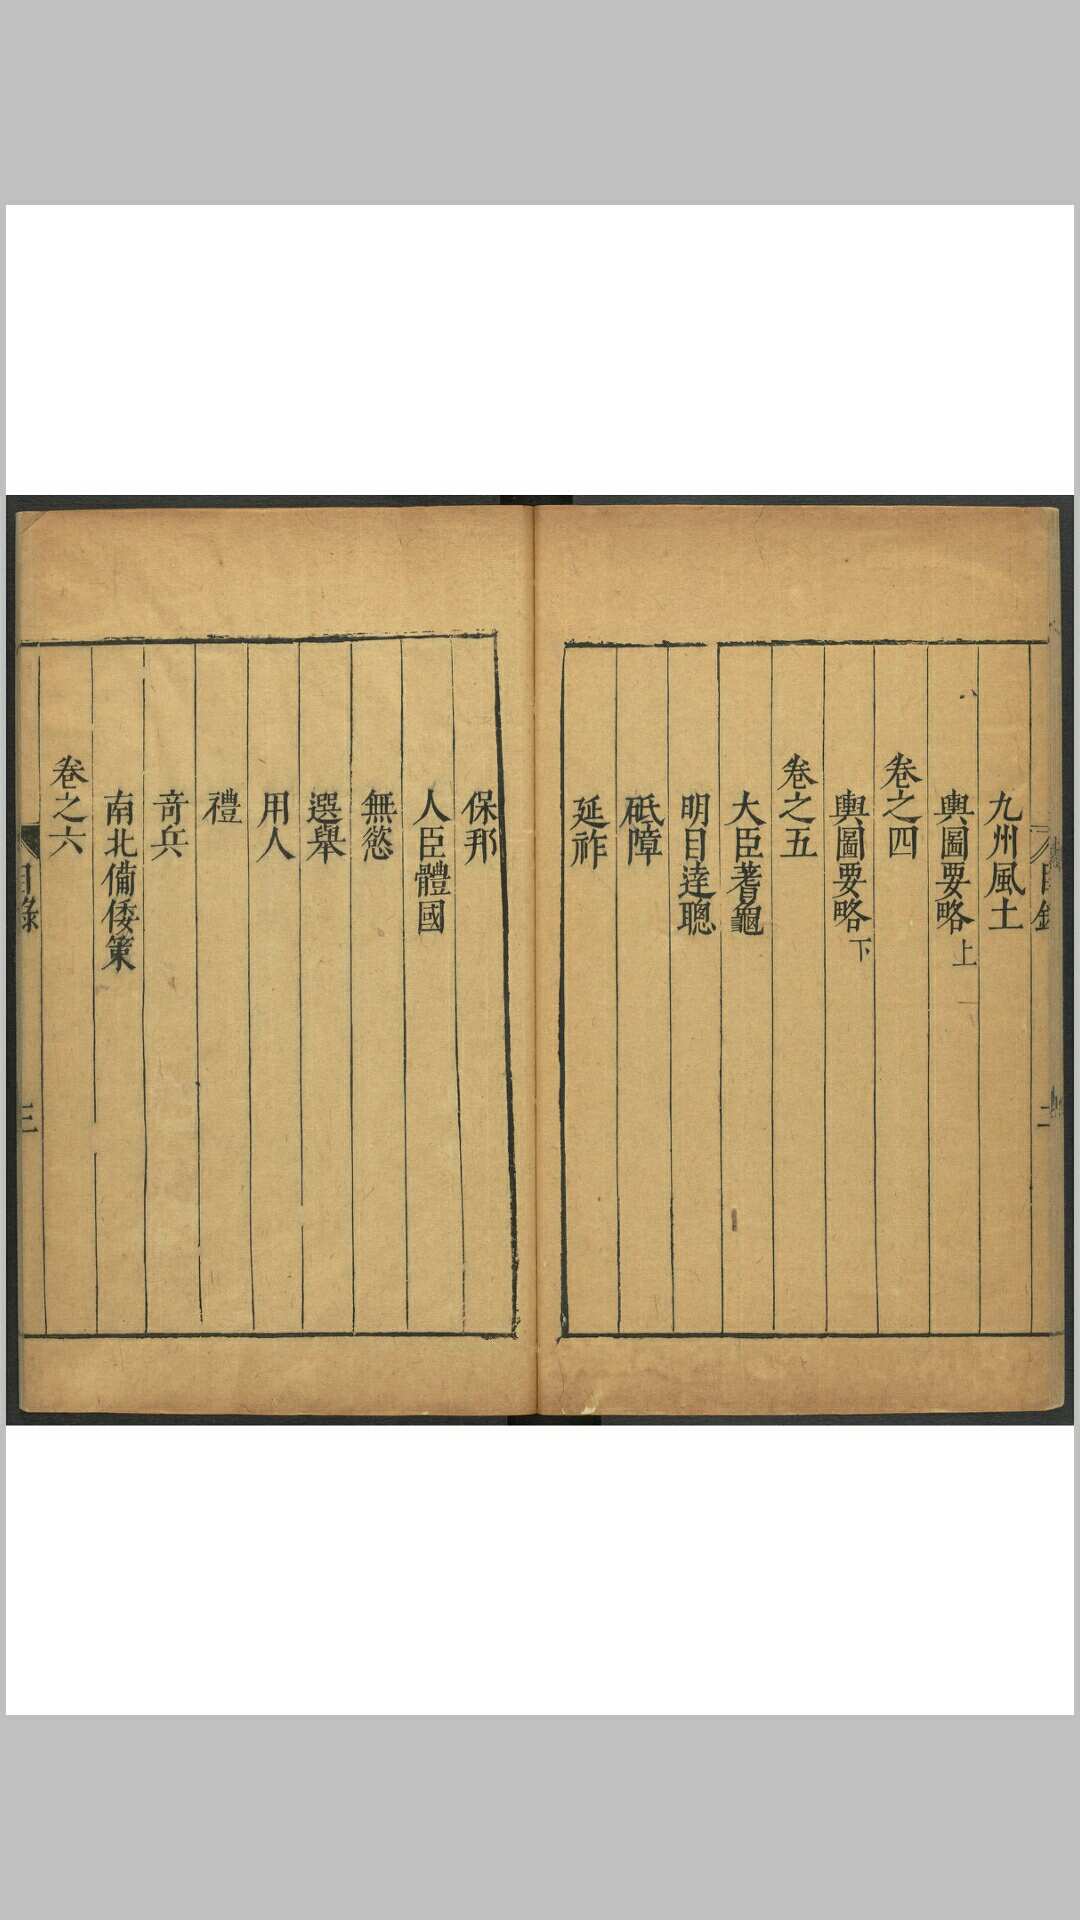 目錄
二
九州風土
輿圖要略上
卷之四
輿圖要略下
卷之五
大臣蓍龜
明目達聰
砥障
延祚
保邦
人臣體國
無慾
選舉
用人
禮
奇兵
南北備倭策
卷之六
目錄
三